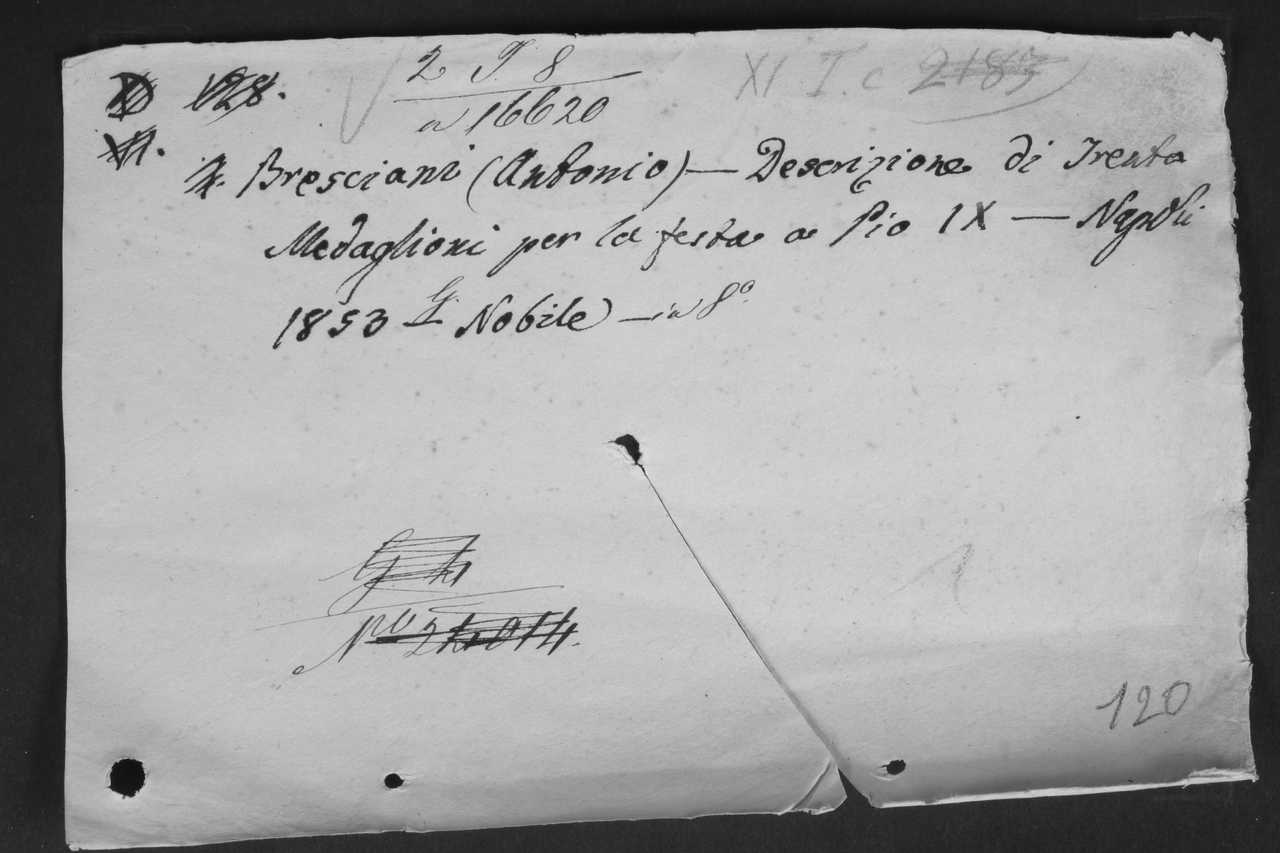 128.
2 T. 8
a 16620
XI I. c 2183
VI.
Bresciani (Antonio) — Descrizione di Trenta
Medaglioni per la festa a Pio IX — Napoli
1853 G. Nobile — in 8°.
No 24014.
1
120